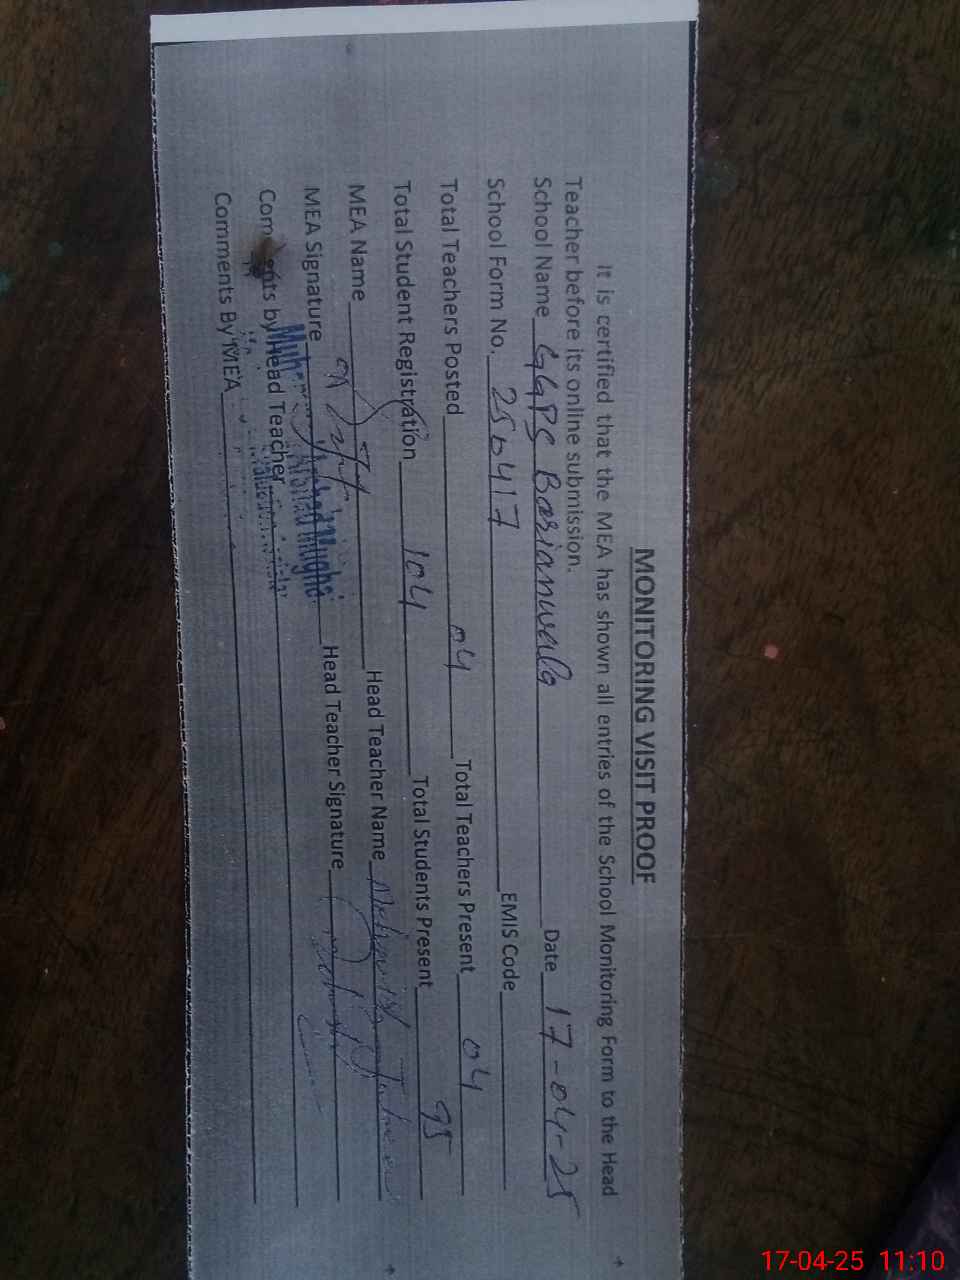 MONITORING VISIT PROOF
It is certified that the MEA has shown all entries of the School Monitoring Form to the Head
Teacher before its online submission.
School Name GGPS Barianwala Date 17-04-25
School Form No. 256417 EMIS Code
Total Teachers Posted 04 Total Teachers Present 04
Total Student Registration 104 Total Students Present 95
MEA Name Head Teacher Name
MEA Signature Head Teacher Signature
Arshad Mughal
Comments by Head Teacher
Comments By MEA
17-04-25 11:10